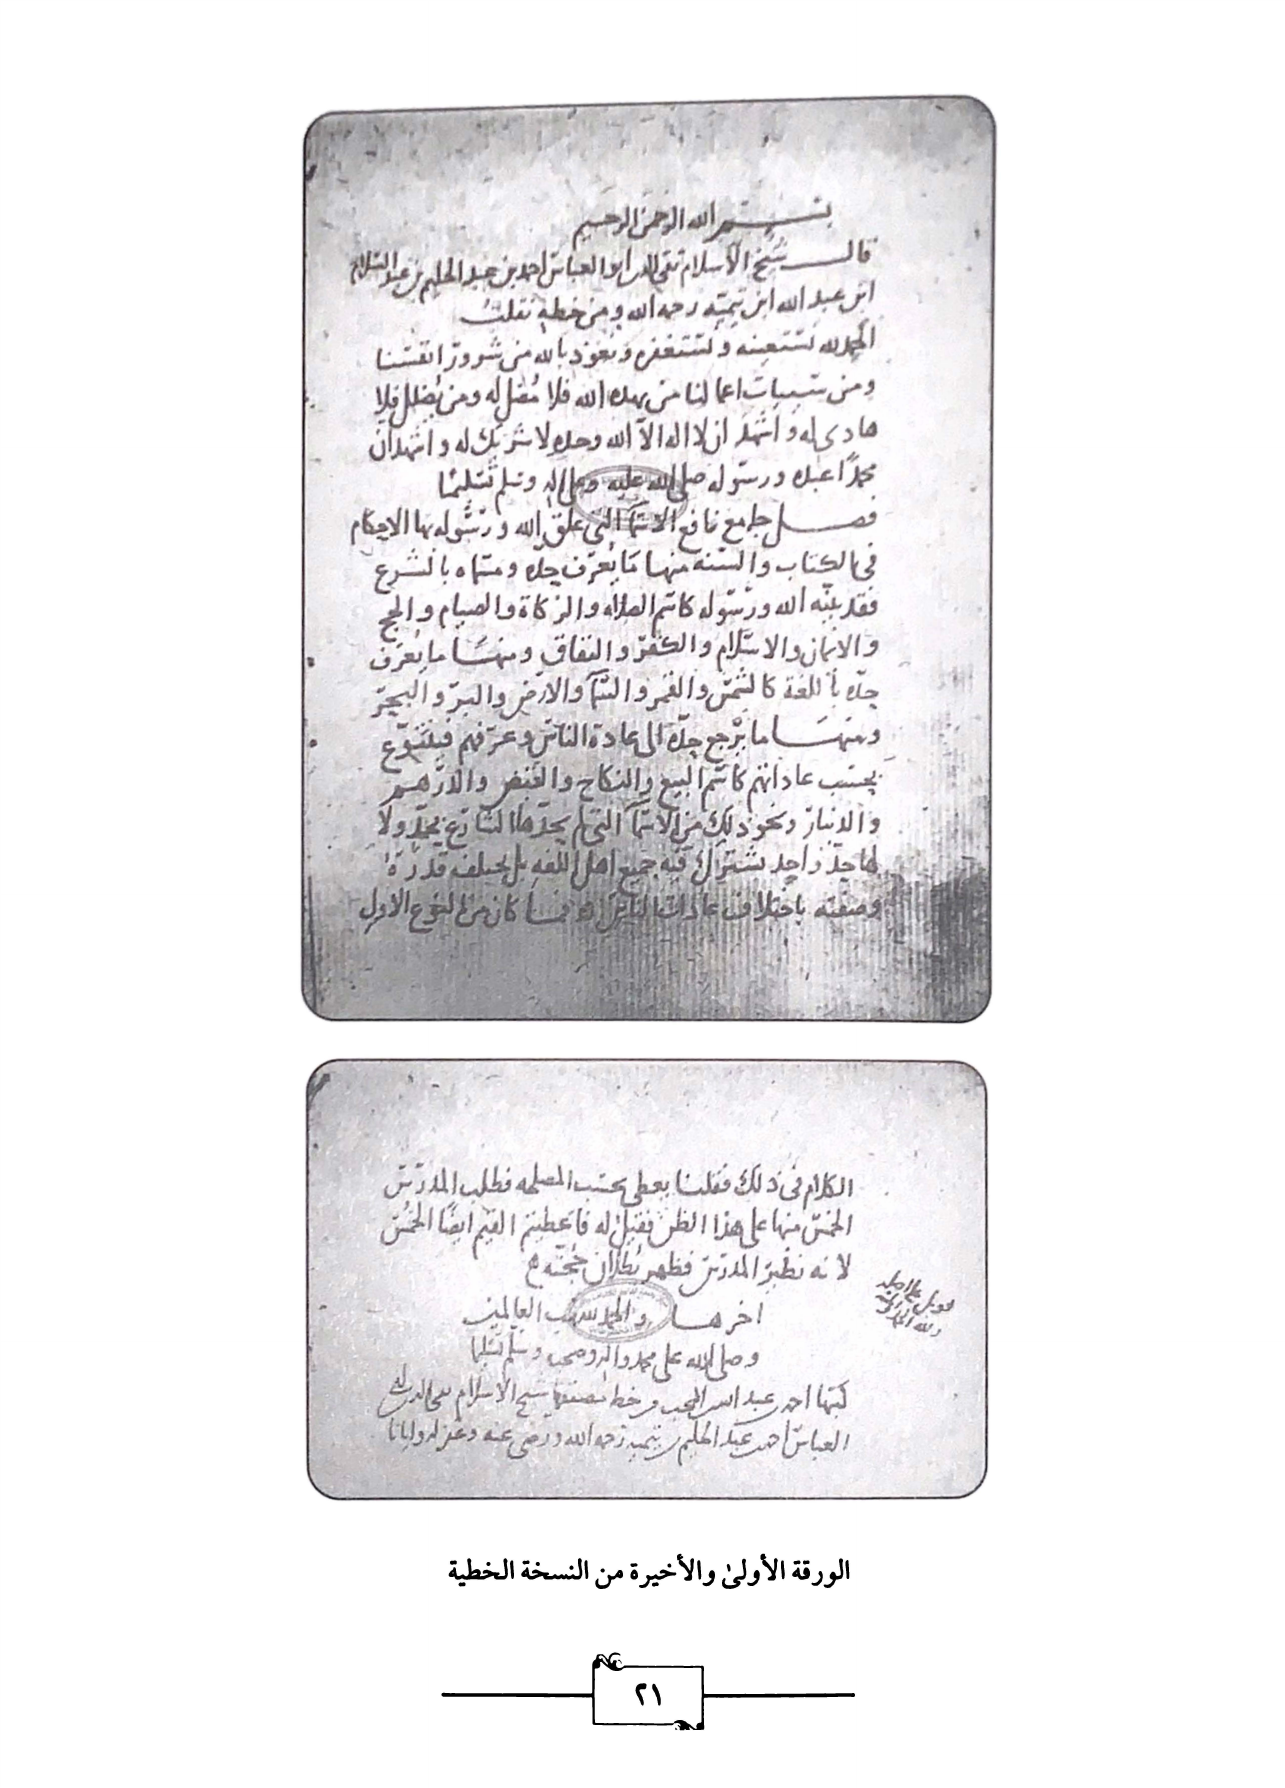 بسم الله الرحمن الرحيم
قال شيخ الاسلام تقي الدين ابو العباس احمد بن عبد الحليم بن عبد السلام
ابن عبد الله ابن تيميه رحمه الله ومن خطه نقلت
الحمد لله نستعينه ونستغفره ونعوذ بالله من شرور انفسنا
ومن سيئات اعمالنا من يهده الله فلا مضل له ومن يضلل فلا
هادي له واشهد ان لا اله الا الله وحده لا شريك له واشهد ان
محمدًا عبده ورسوله صلى الله عليه وعلى اله وسلم تسليمًا
فصل جامع نافع الاسمآ التي علق الله ورسوله بها الاحكام
في الكتاب والسنه منها ما يعرف حده ومسماه بالشرع
فقد بينه الله ورسوله كاسم الصلاه والزكاة والصيام والحج
والايمان والاسلام والكفر والنفاق ومنها ما يعرف
حده باللغة كالشمس والقمر والسمآ والارض والبر والبحر
ومنها ما يرجع حده الى عادة الناس وعرفهم فيتنوع
بحسب عاداتهم كاسم البيع والنكاح والقبض والدرهم
والدينار ونحو ذلك من الاسمآ التي لم يحدها الشارع بحد ولا
لها حد واحد يشترك فيه جميع اهل اللغه بل يختلف قدره
وصفته باختلاف عادات الناس فما كان من النوع الاول
الكلام في ذلك فقلنا يعطى بحسب المصلحه فطلب المدرس
الخمس منها على هذا الظن فقيل له فاعطيتم القيم ايضًا الخمس
لانه نظير المدرس فظهر بطلان حجته
اخرها والحمد لله رب العالمين
وصلى الله على محمد واله وصحبه وسلم تسليما
كتبها احمد بن عبد الله المحب من خط مصنفها شيخ الاسلام تقي الدين ابي
العباس احمد بن عبد الحليم بن تيميه رحمه الله ورضي عنه وغفر له وايانا
قوبل على اصله
ولله الحمد
الورقة الأولىٰ والأخيرة من النسخة الخطية
٢١